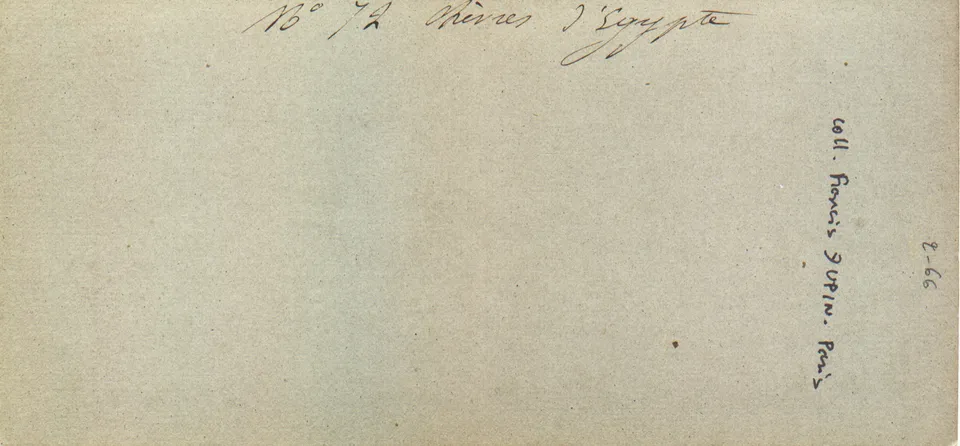 N° 72 Chèvres d'Egypte
coll. Francis JUPIN. Paris
2-66